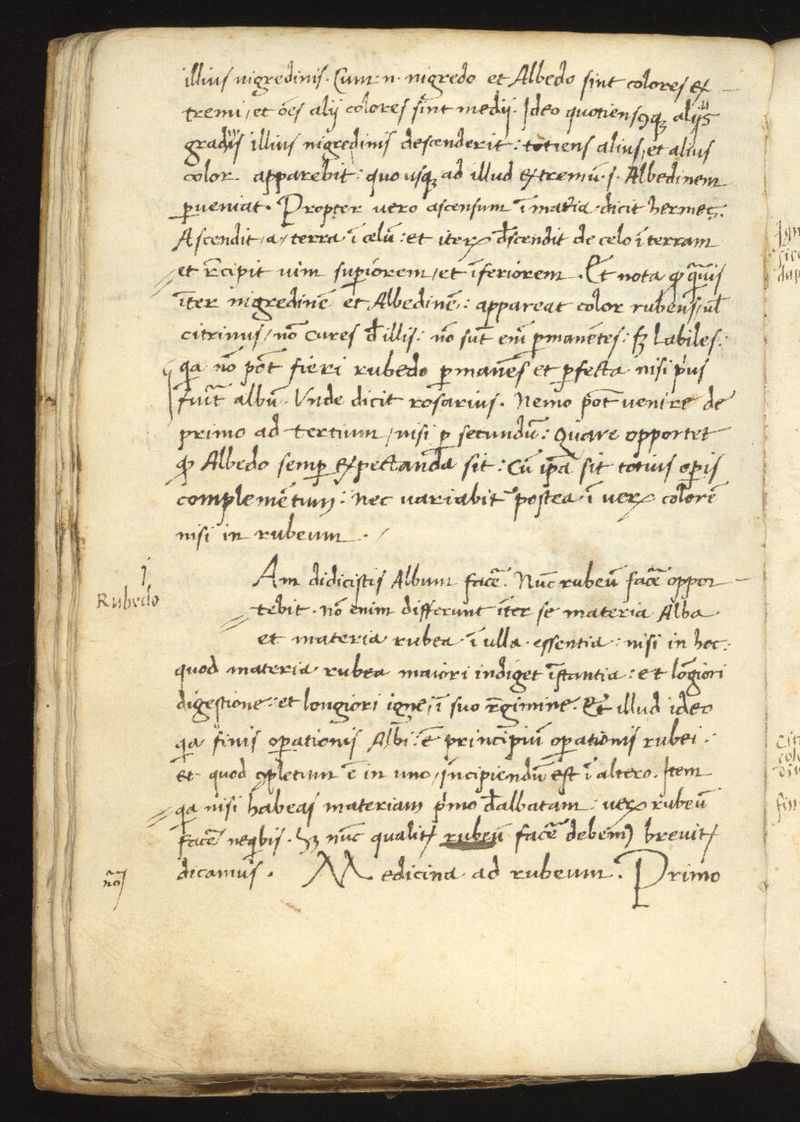 illius nigredinis. Cum .n. nigredo et Albedo sint colores ex
tremi / et oẽs alij colores sint medij. Ideo quotiensꝯqꝫ alijs
gradijs illius nigredinis descenderit : totiens alius / et alius
color apparebit : quousqꝫ ad illud extremũ .s. Albedinem
ꝑveniat. Propter vero ascensum ĩ mat̃ia dicit hermes :
Ascendit / a / terra ĩ celũ : et iteꝝ d̃scendit de celo ĩ terram
et r̃cipit vim superiorem / et ĩferiorem. Et nota ꝙ quãvis
ĩter nigredinẽ et Albedinẽ : appareat color rubeus / ul̃
citrinus / nõ cures d̃ illis : nõ sunt eñi ꝑmanẽtes : sꝫ labiles :
q̃a nõ põt fieri rubedo ꝑmanẽs et ꝑfecta nisi p̃us
fuĩt albũ. Unde dicit rosarius. Nemo põt venire de
primo ad tertium / nisi ꝑ secundũ : Quare opportet
ꝙ Albedo semꝑ expectanda sit : Cũ ip̃a sit totius oꝑis
complemẽtum : nec variabit̃ postea ĩ veꝝ colorẽ
nisi in rubeum . /
j
Rubedo
Am didicistis Album facẽ. Nũc rubeũ facẽ oppor
tebit. nõ enim differunt ĩter se materia Alba
et materia rubea ĩ ulla essentia : nisi in hoc :
quod materia rubea maiori indiget ĩstantia : et lõgiori
digestione : et longiori igne / ĩ suo r̃gimine. Et illud ideo
q̃a finis oꝑationis Albi : ẽ principiũ oꝑationis rubei :
et quod ꝯpletum ẽ in uno / incipiendũ est ĩ altero. Item
q̃a nisi habeas materiam p̃mo d̃albatam : veꝝ rubeũ
facẽ neq̃bis. Sꝫ nũc qualit̃ rubeũ facẽ debem⁹ brevit̃
dicamus. Medicina ad rubeum. Primo